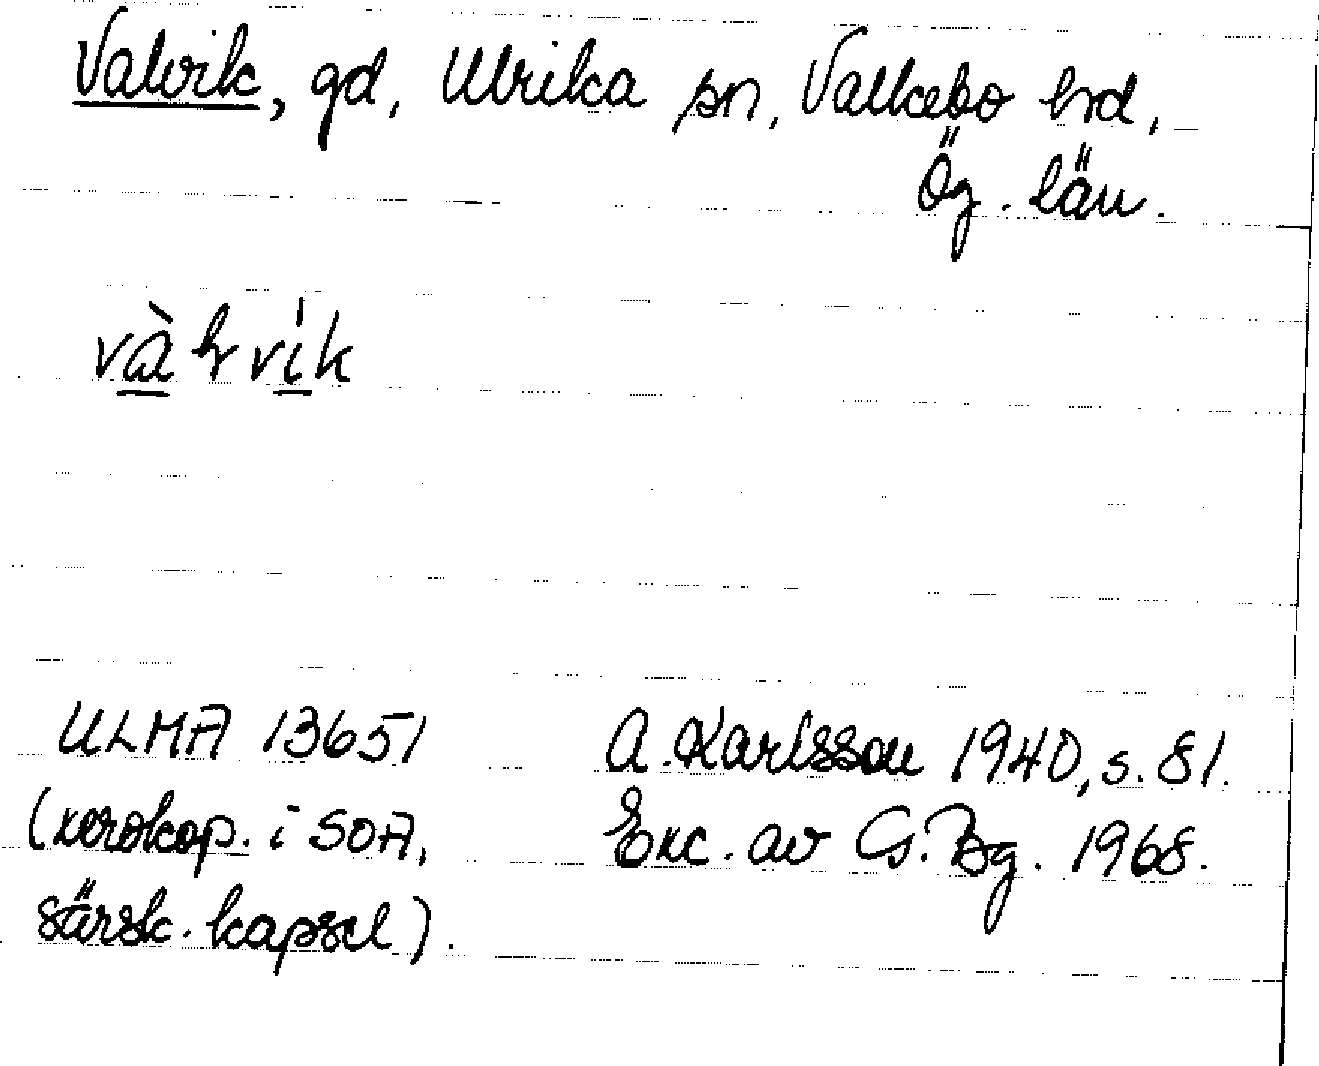 Valvik, gd, Ulrika sn, Valkebo hrd,
Ög. län.
vàlvik
ULMA 13651
(xerokop. i SOA,
särsk. kapsel).
A. Karlsson 1940, s. 81.
Exc. av G. Bg. 1968.